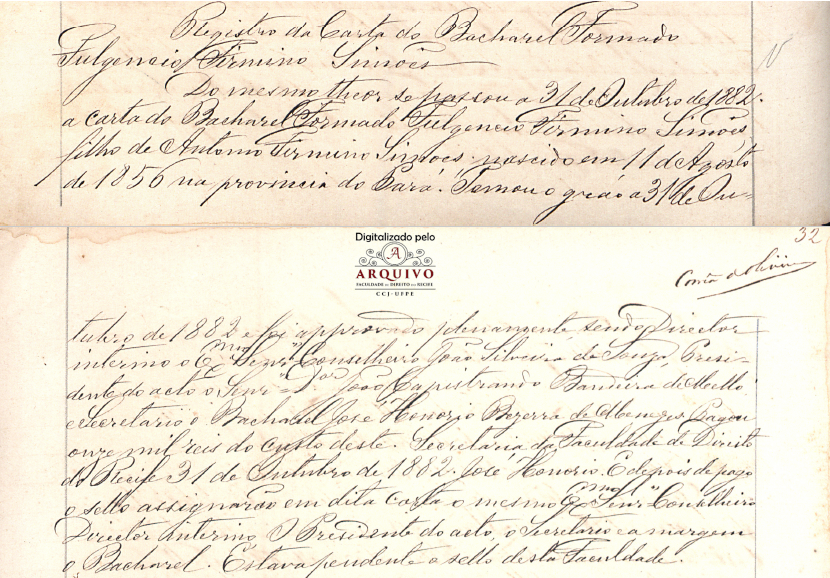 Registro da Carta do Bacharel Formado
Fulgencio Firmino Simões
Do mesmo theor se passou a 31 de Outubro de 1882.
a carta do Bacharel Formado Fulgencio Firmino Simões,
filho de Antonio Firmino Simões nascido em 11 de Agosto
de 1856 na provincia do Pará. Tomou o gráo a 31 de Ou-
32
Digitalizado pelo
A
ARQUIVO
FACULDADE DE DIREITO DO RECIFE
CCJ-UFPE
tubro de 1882 e foi approvado plenamente sendo Director
interino o Exmo Senr Conselheiro João Silveira de Souza, Presi-
dente do acto o Senr Dor João Capistrano Bandeira de Mello
e Secretario o Bacharel José Honorio Bezerra de Menezes. Pagou
onze mil reis do custo deste. Secretaria da Faculdade de Direito
do Recife 31 de Outubro de 1882. José Honorio. E depois de pago
o sello assignarão em dita carta o mesmo Exmo Senr Conselheiro
Director interino O Presidente do acto, o Secretario e a margem
o Bacharel. Estava pendente o sello desta Faculdade.